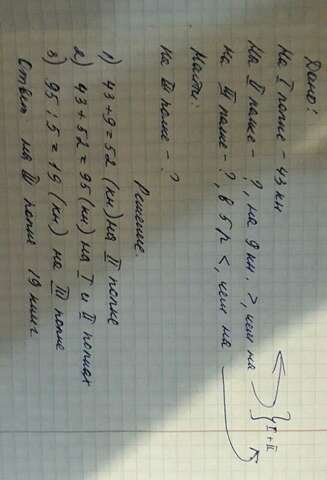 Дано:
На I полке - 43 кн
На II полке - ?, на 9 кн. >, чем на
на III полке - ?, в 5 р <, чем на } I + II
Найти:
На III полке - ?
Решение.
1) 43+9=52 (кн) на II полке
2) 43+52=95 (кн) на I и II полках
3) 95:5=19 (кн) на III полке
Ответ на III полке 19 книг.